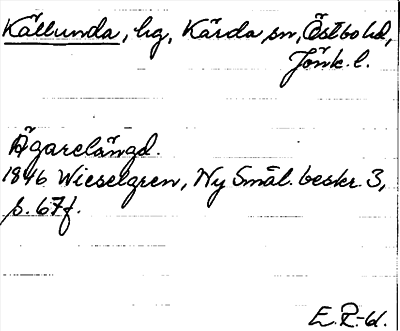 Källunda, hg, Kärda sn, Östbo hd,
Jönk. l.
Ägarelängd.
1846 Wieselgren, Ny Smål. beskr. 3,
s. 67f.
E. R-d.